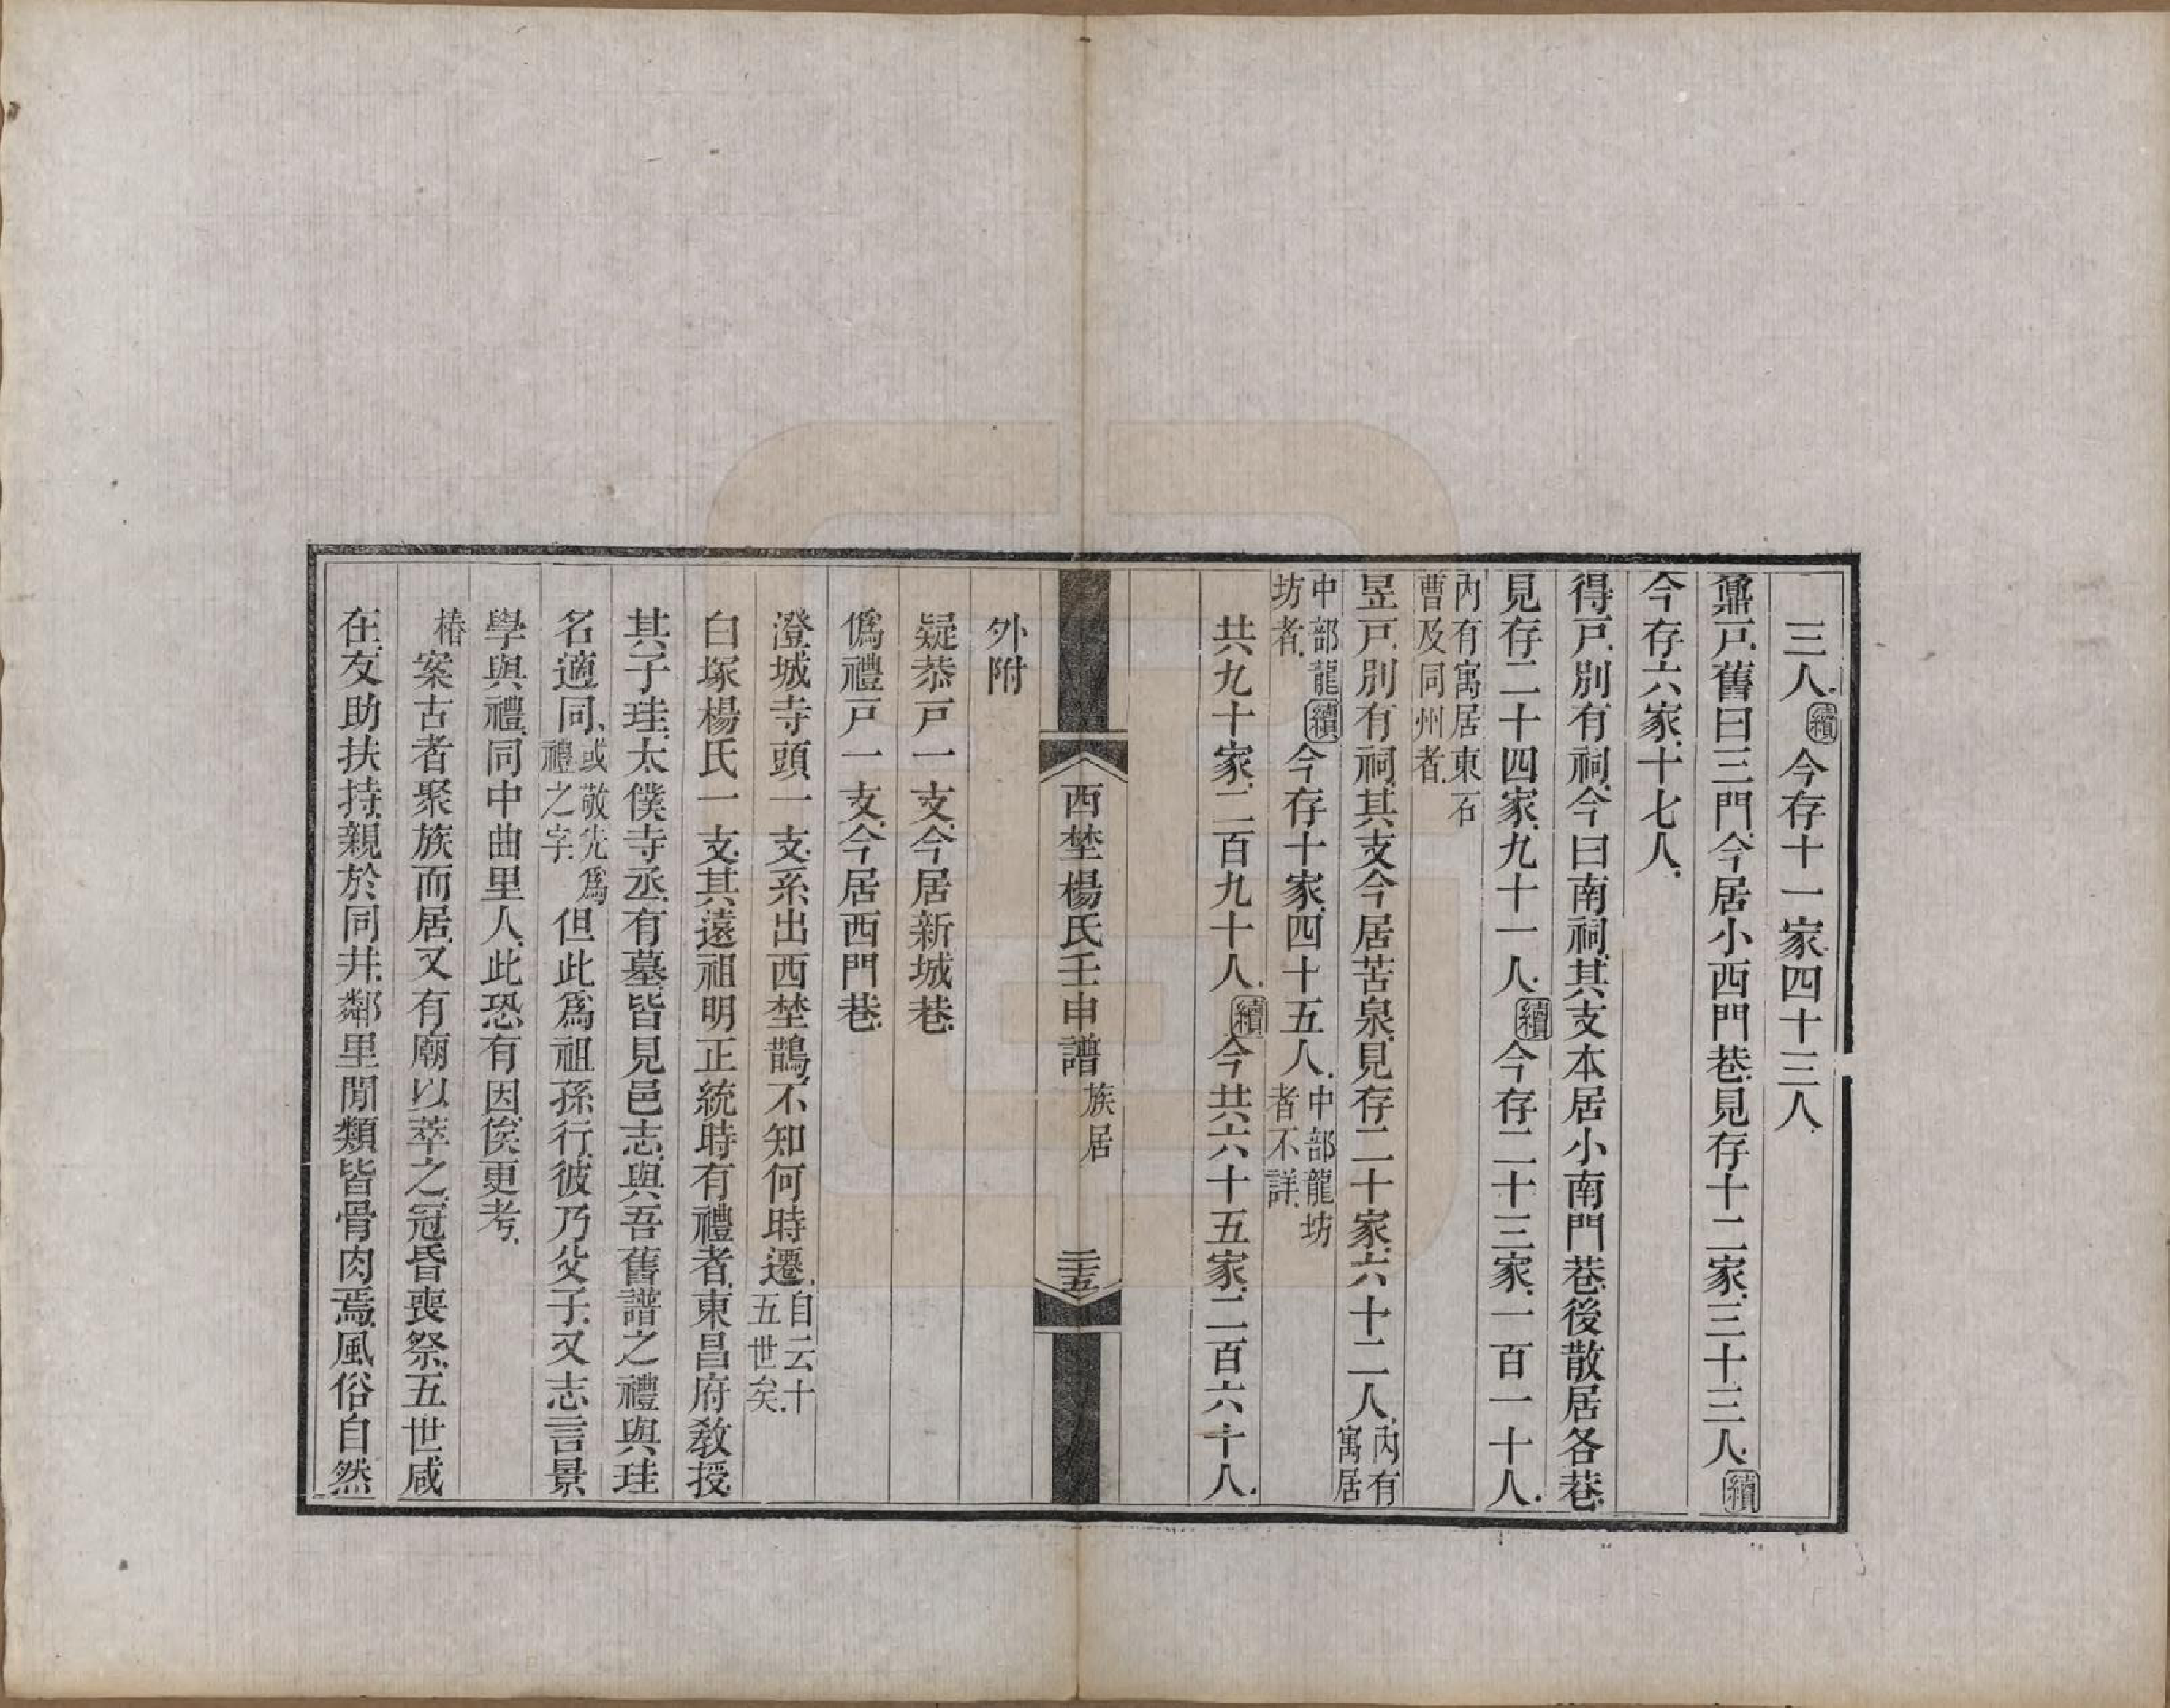 三人續今存十一家四十三人
鼐戸舊曰三門今居小西門巷見存十二家三十三人續
今存六家十七人
得戸別有祠今曰南祠其支本居小南門巷後散居各巷
見存二十四家九十一人續今存二十三家一百一十人
內有寓居東石
曹及同州者
昱戸別有祠其支今居苦泉見存二十家六十二人內有
寓居
中部龍
坊者續今存十家四十五人中部龍坊
者不詳
共九十家二百九十人續今共六十五家二百六十人
西埜楊氏壬申譜 族居 二十五
外附
疑恭戸一支今居新城巷
僞禮戸一支今居西門巷
澄城寺頭一支系出西埜鵲不知何時遷自云十
五世矣
白塚楊氏一支其遠祖明正統時有禮者東昌府教授
其子珪太僕寺丞有墓皆見邑志與吾舊譜之禮與珪
名適同或敬先爲
禮之字但此爲祖孫行彼乃父子又志言景
學與禮同中曲里人此恐有因俟更考
椿案古者聚族而居又有廟以萃之冠昏喪祭五世咸
在友助扶持親於同井鄰里閒類皆骨肉焉風俗自然